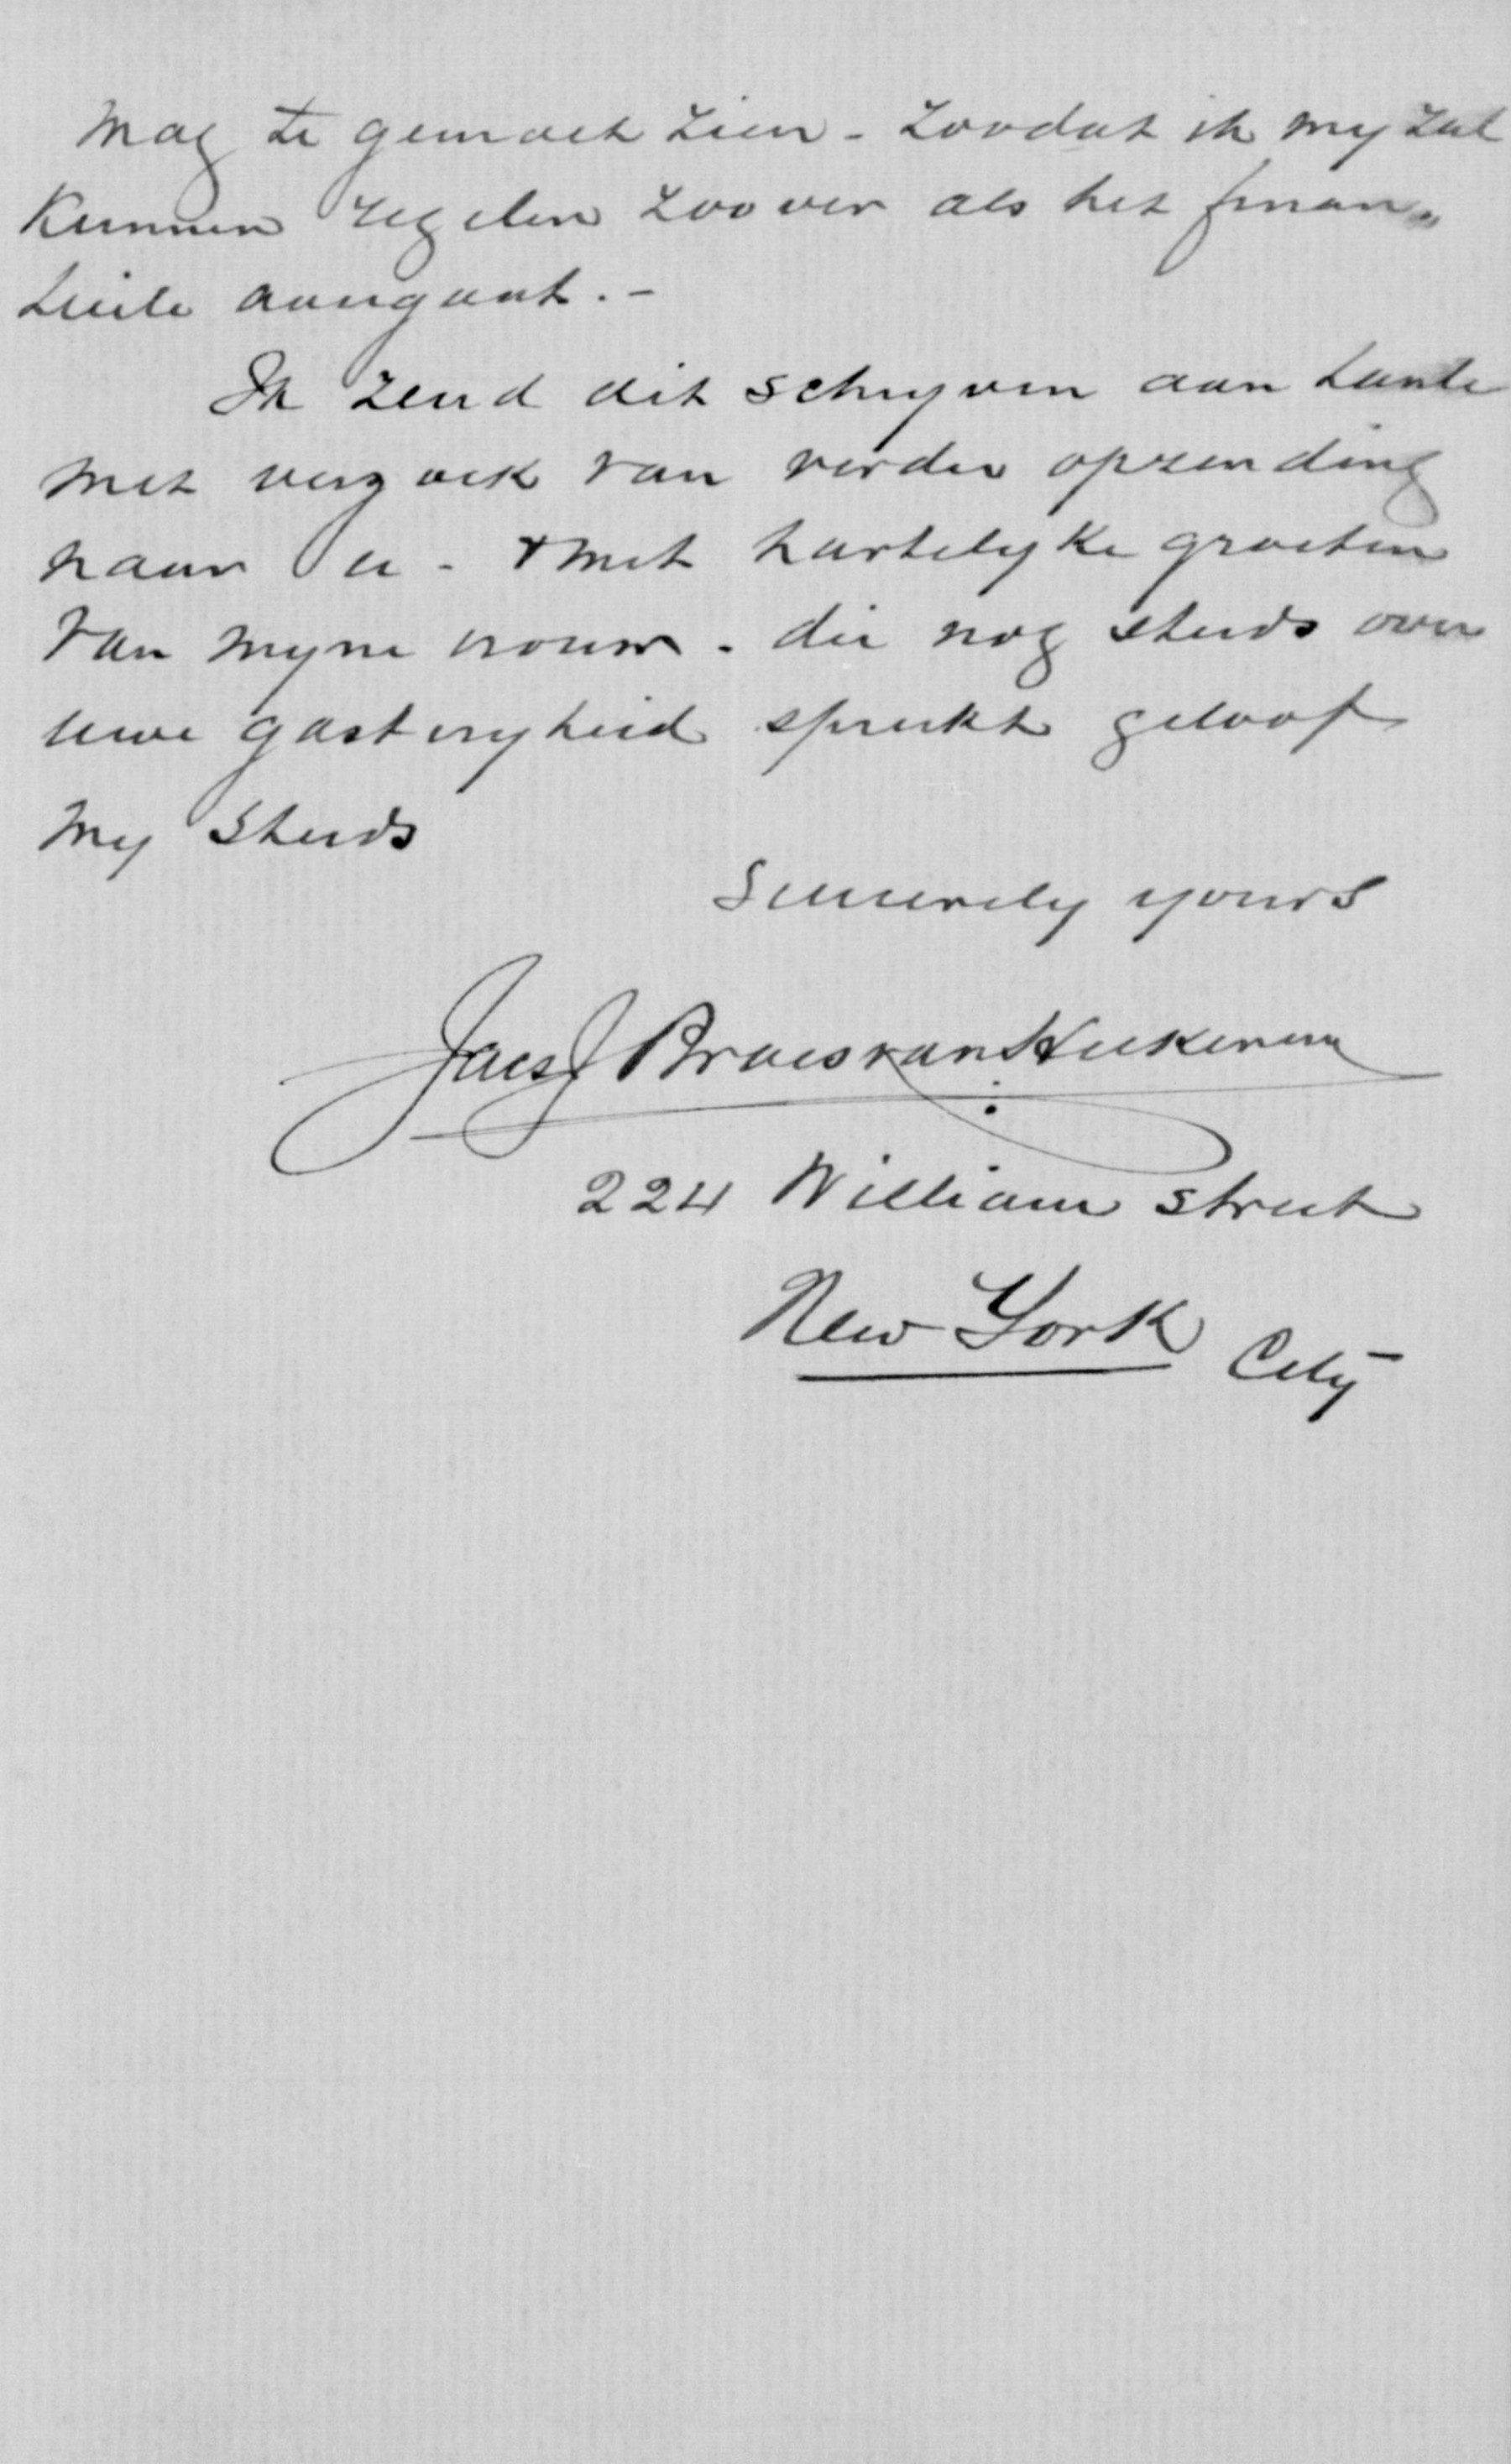 mag te gemoet zien - zoodat ik my zal
kunnen regelen zoover als het finan„
tieële aangaat. -
Ik zend dit schryven aan tante
met verzoek van verder opzending
naar u - + met hartelyke groeten
van myne vrouw - die nog steeds over
uwe gastvryheid spreekt geloof
my steeds
Sincerely yours
Jacs J Braes van Heekeren
224 William Street
New York City